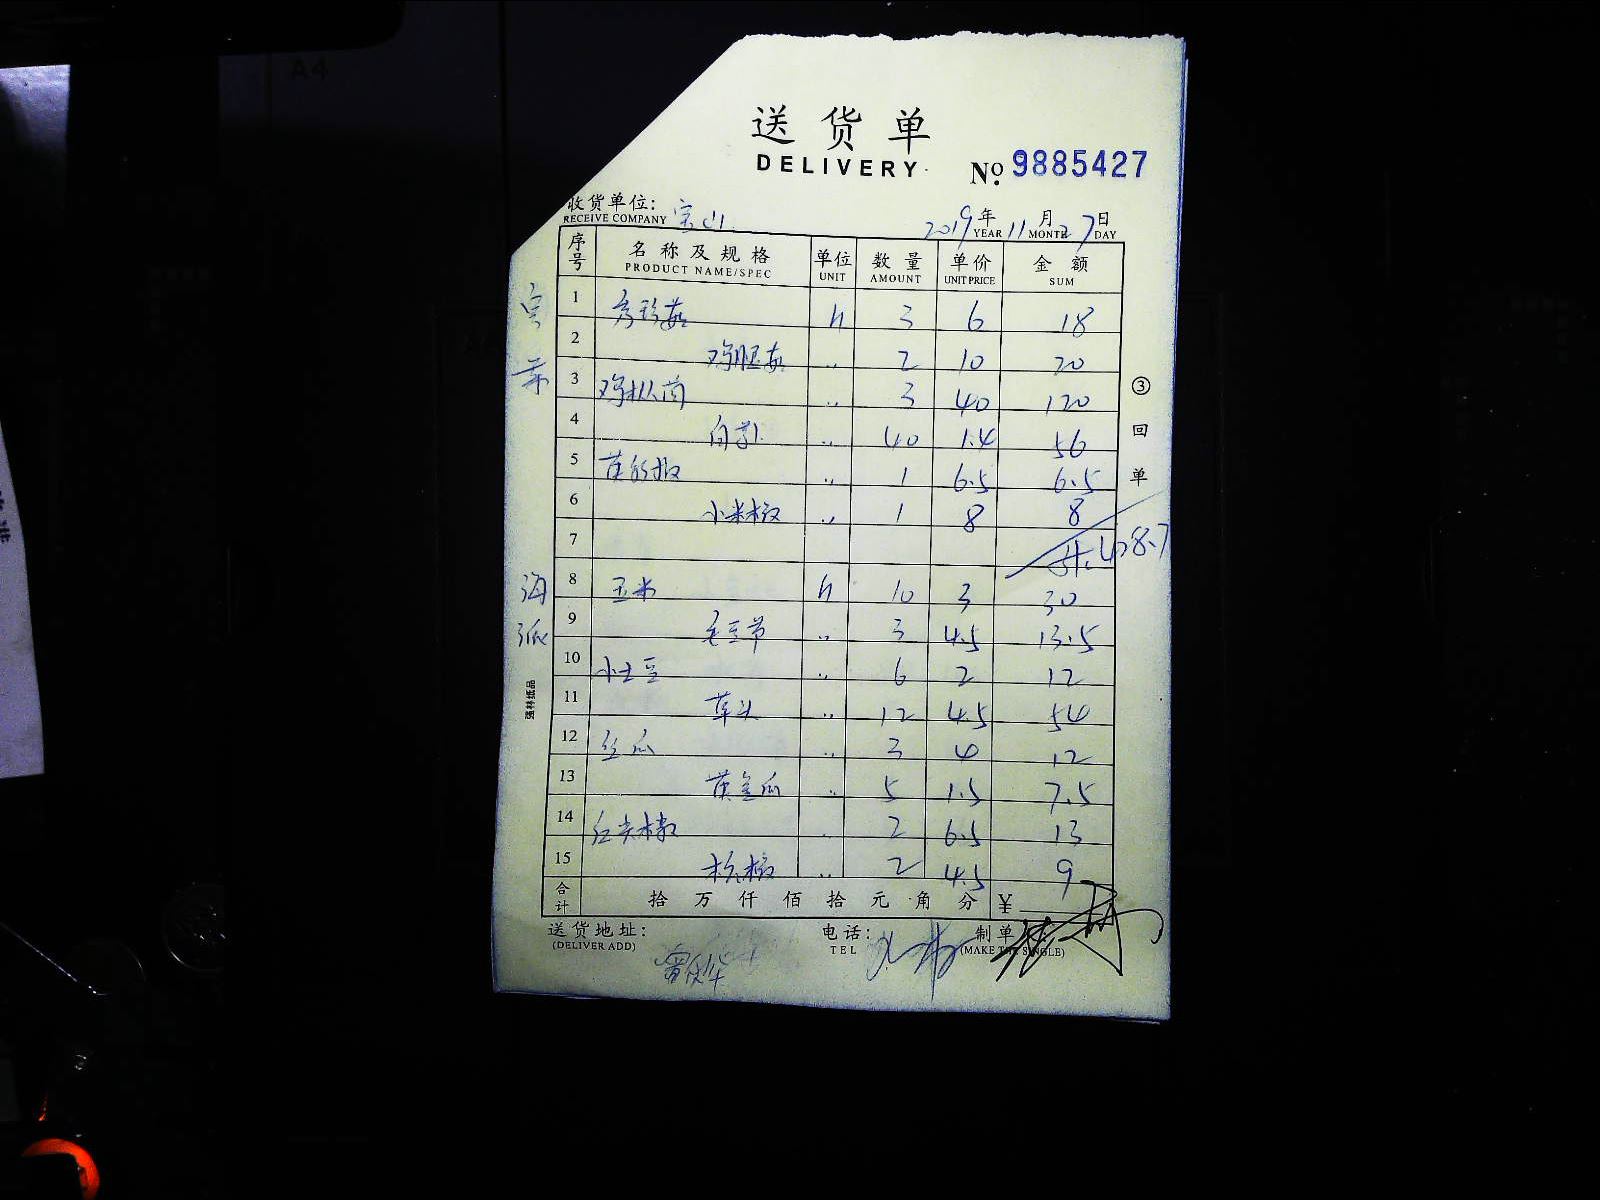 送货单
DELIVERY
No. 9885427
收货单位: 宝山
RECEIVE COMPANY
2019年11月27日
YEAR MONTH DAY
序号 名称及规格 单位 数量 单价 金额
PRODUCT NAME/SPEC UNIT AMOUNT UNIT PRICE SUM
1 秀珍菇 斤 3 6 18
2 鸡腿菇 〃 2 10 20
3 鸡枞菌 〃 3 40 120
4 〃 40 1.4 56
5 〃 1 6.5 6.5
6 小米椒 〃 1 8 8
7 共:408.7
海派
8 玉米 斤 10 3 30
9 毛豆节 〃 3 4.5 13.5
10 小土豆 〃 6 2 12
11 草头 〃 12 4.5 54
12 丝瓜 〃 3 4 12
13 黄金瓜 〃 5 1.5 7.5
14 红尖椒 2 6.5 13
15 杭椒 〃 2 4.5 9
合计 拾 万 仟 佰 拾 元 角 分 ¥
送货地址:
(DELIVER ADD)
电话:
TEL
制单
③回单
强林纸品
A4